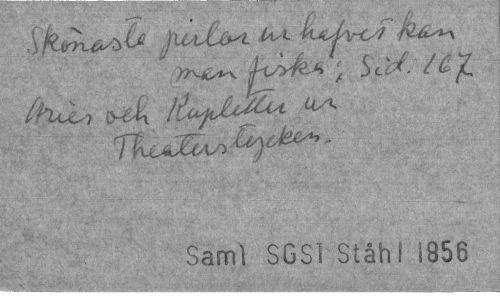 Skönaste perlor ur hafvet kan
man fiska; Sid. 167
Aries och Kupletter ur
Theaterstycken.
Saml SGS1 Ståhl 1856